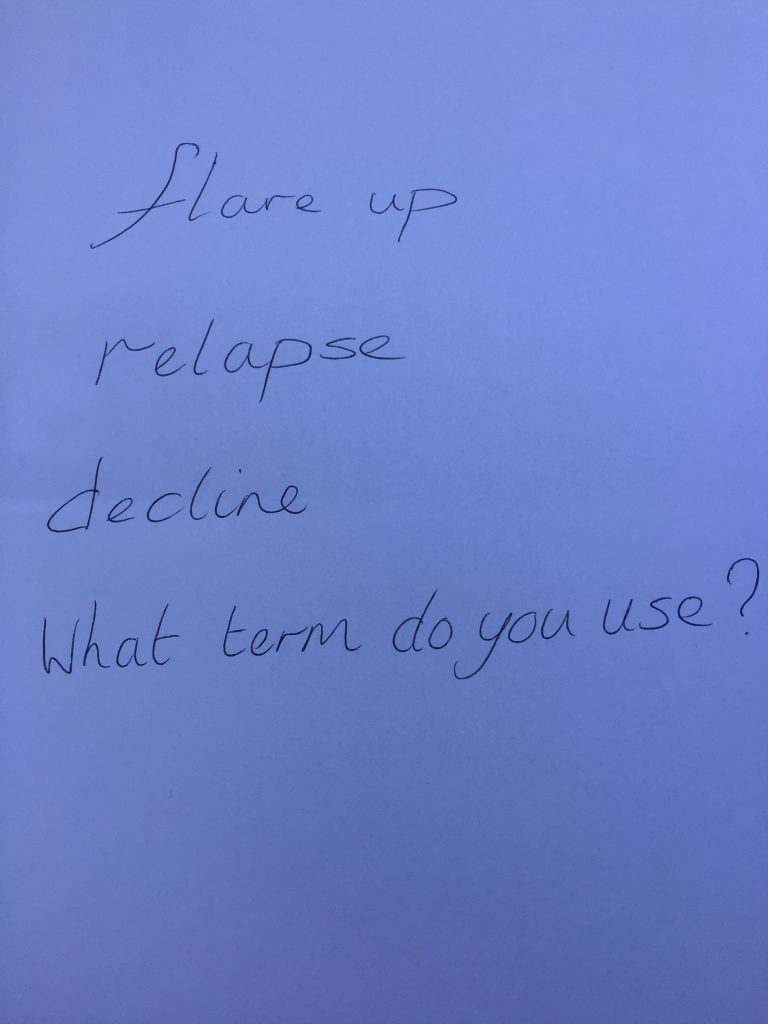 flare up
relapse
decline
What term do you use?